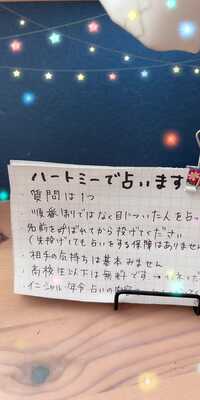 ハートミーで占います
・質問は1つ
・順番待りではなく目についた人を占
名前を呼ばれてから投げてください
(失投げしても占いをする保障はありません
・相手の気持ちは基本みません
・高校生以下は無料です
・イニシャル・年令・占いの内容